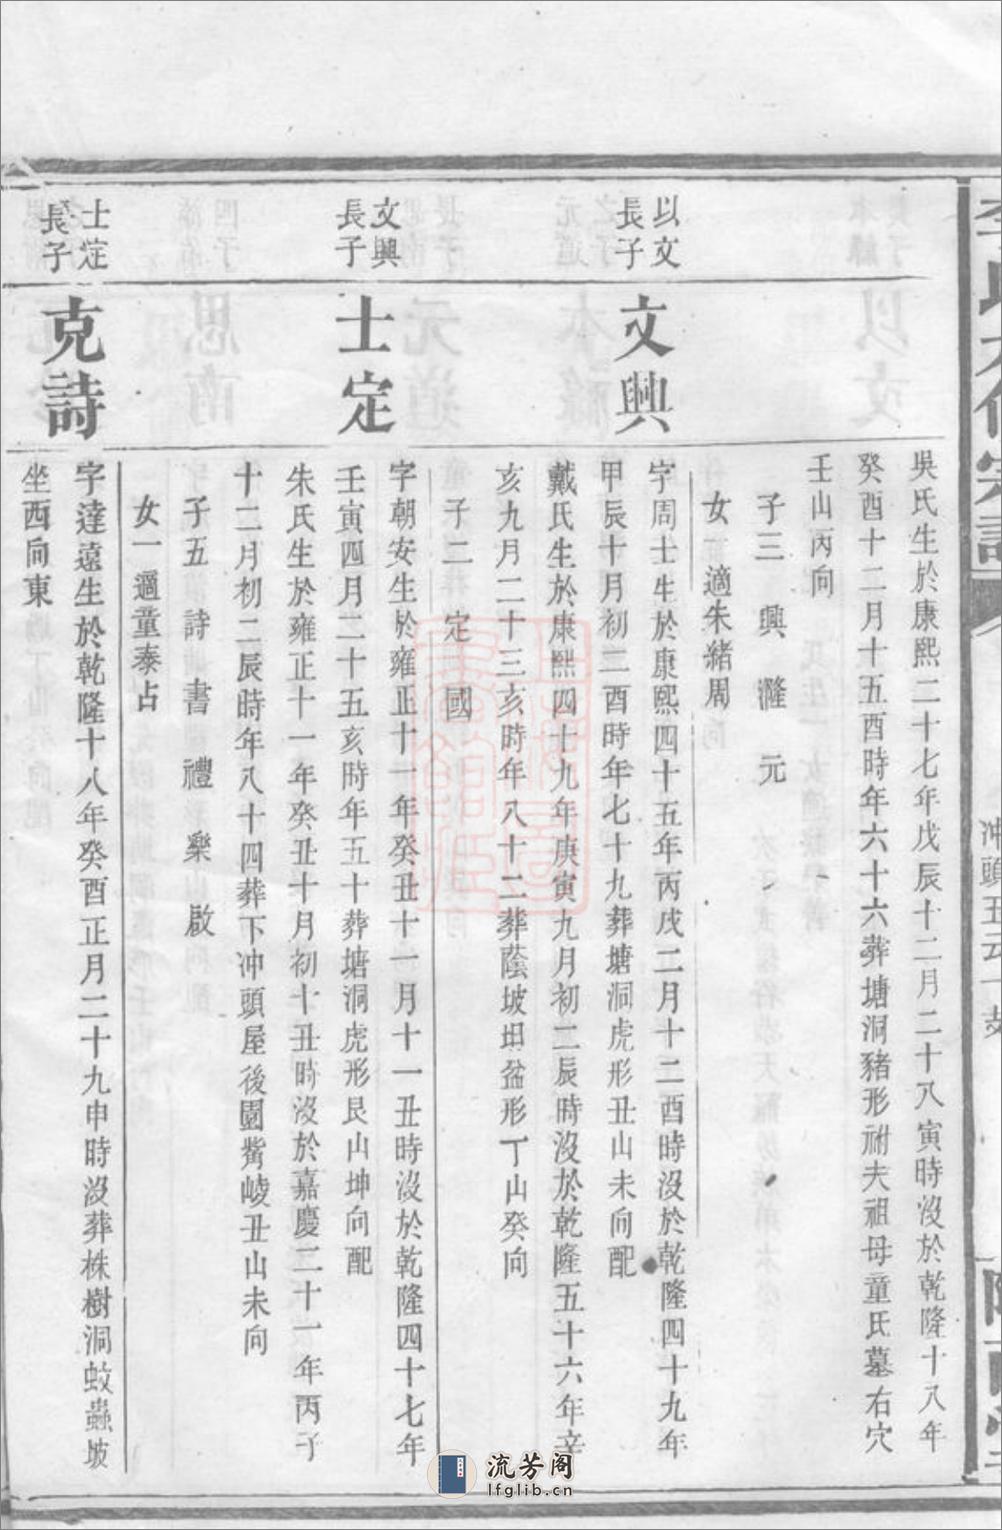 吳氏生於康熙二十七年戊辰十二月二十八寅時沒於乾隆十八年
癸酉十二月十五酉時年六十六葬塘洞豬形祔夫祖母童氏墓右穴
壬山丙向
子三 興 漋 元
女一適朱緒周
以文
長子
文興
字周士生於康熙四十五年丙戌二月十二酉時沒於乾隆四十九年
甲辰十月初三酉時年七十九葬塘洞虎形丑山未向配
戴氏生於康熙四十九年庚寅九月初二辰時沒於乾隆五十六年辛
亥九月二十三亥時年八十二葬蔭坡坦盆形丁山癸向
子二 定 國
文興
長子
士定
字朝安生於雍正十一年癸丑十一月十一丑時沒於乾隆四十七年
壬寅四月二十五亥時年五十葬塘洞虎形艮山坤向配
朱氏生於雍正十一年癸丑十月初十丑時沒於嘉慶二十一年丙子
十二月初二辰時年八十四葬下冲頭屋後園觜崚丑山未向
子五 詩 書 禮 樂 啟
女一適童泰占
士定
長子
克詩
字達遠生於乾隆十八年癸酉正月二十九申時沒葬株樹洞蚊蟲坡
坐西向東
流芳阁
lfglib.cn